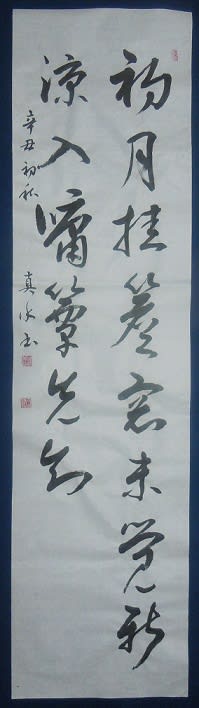 初月挂簷窓未覺新
涼入牖簟先知
辛丑初秋 真 书